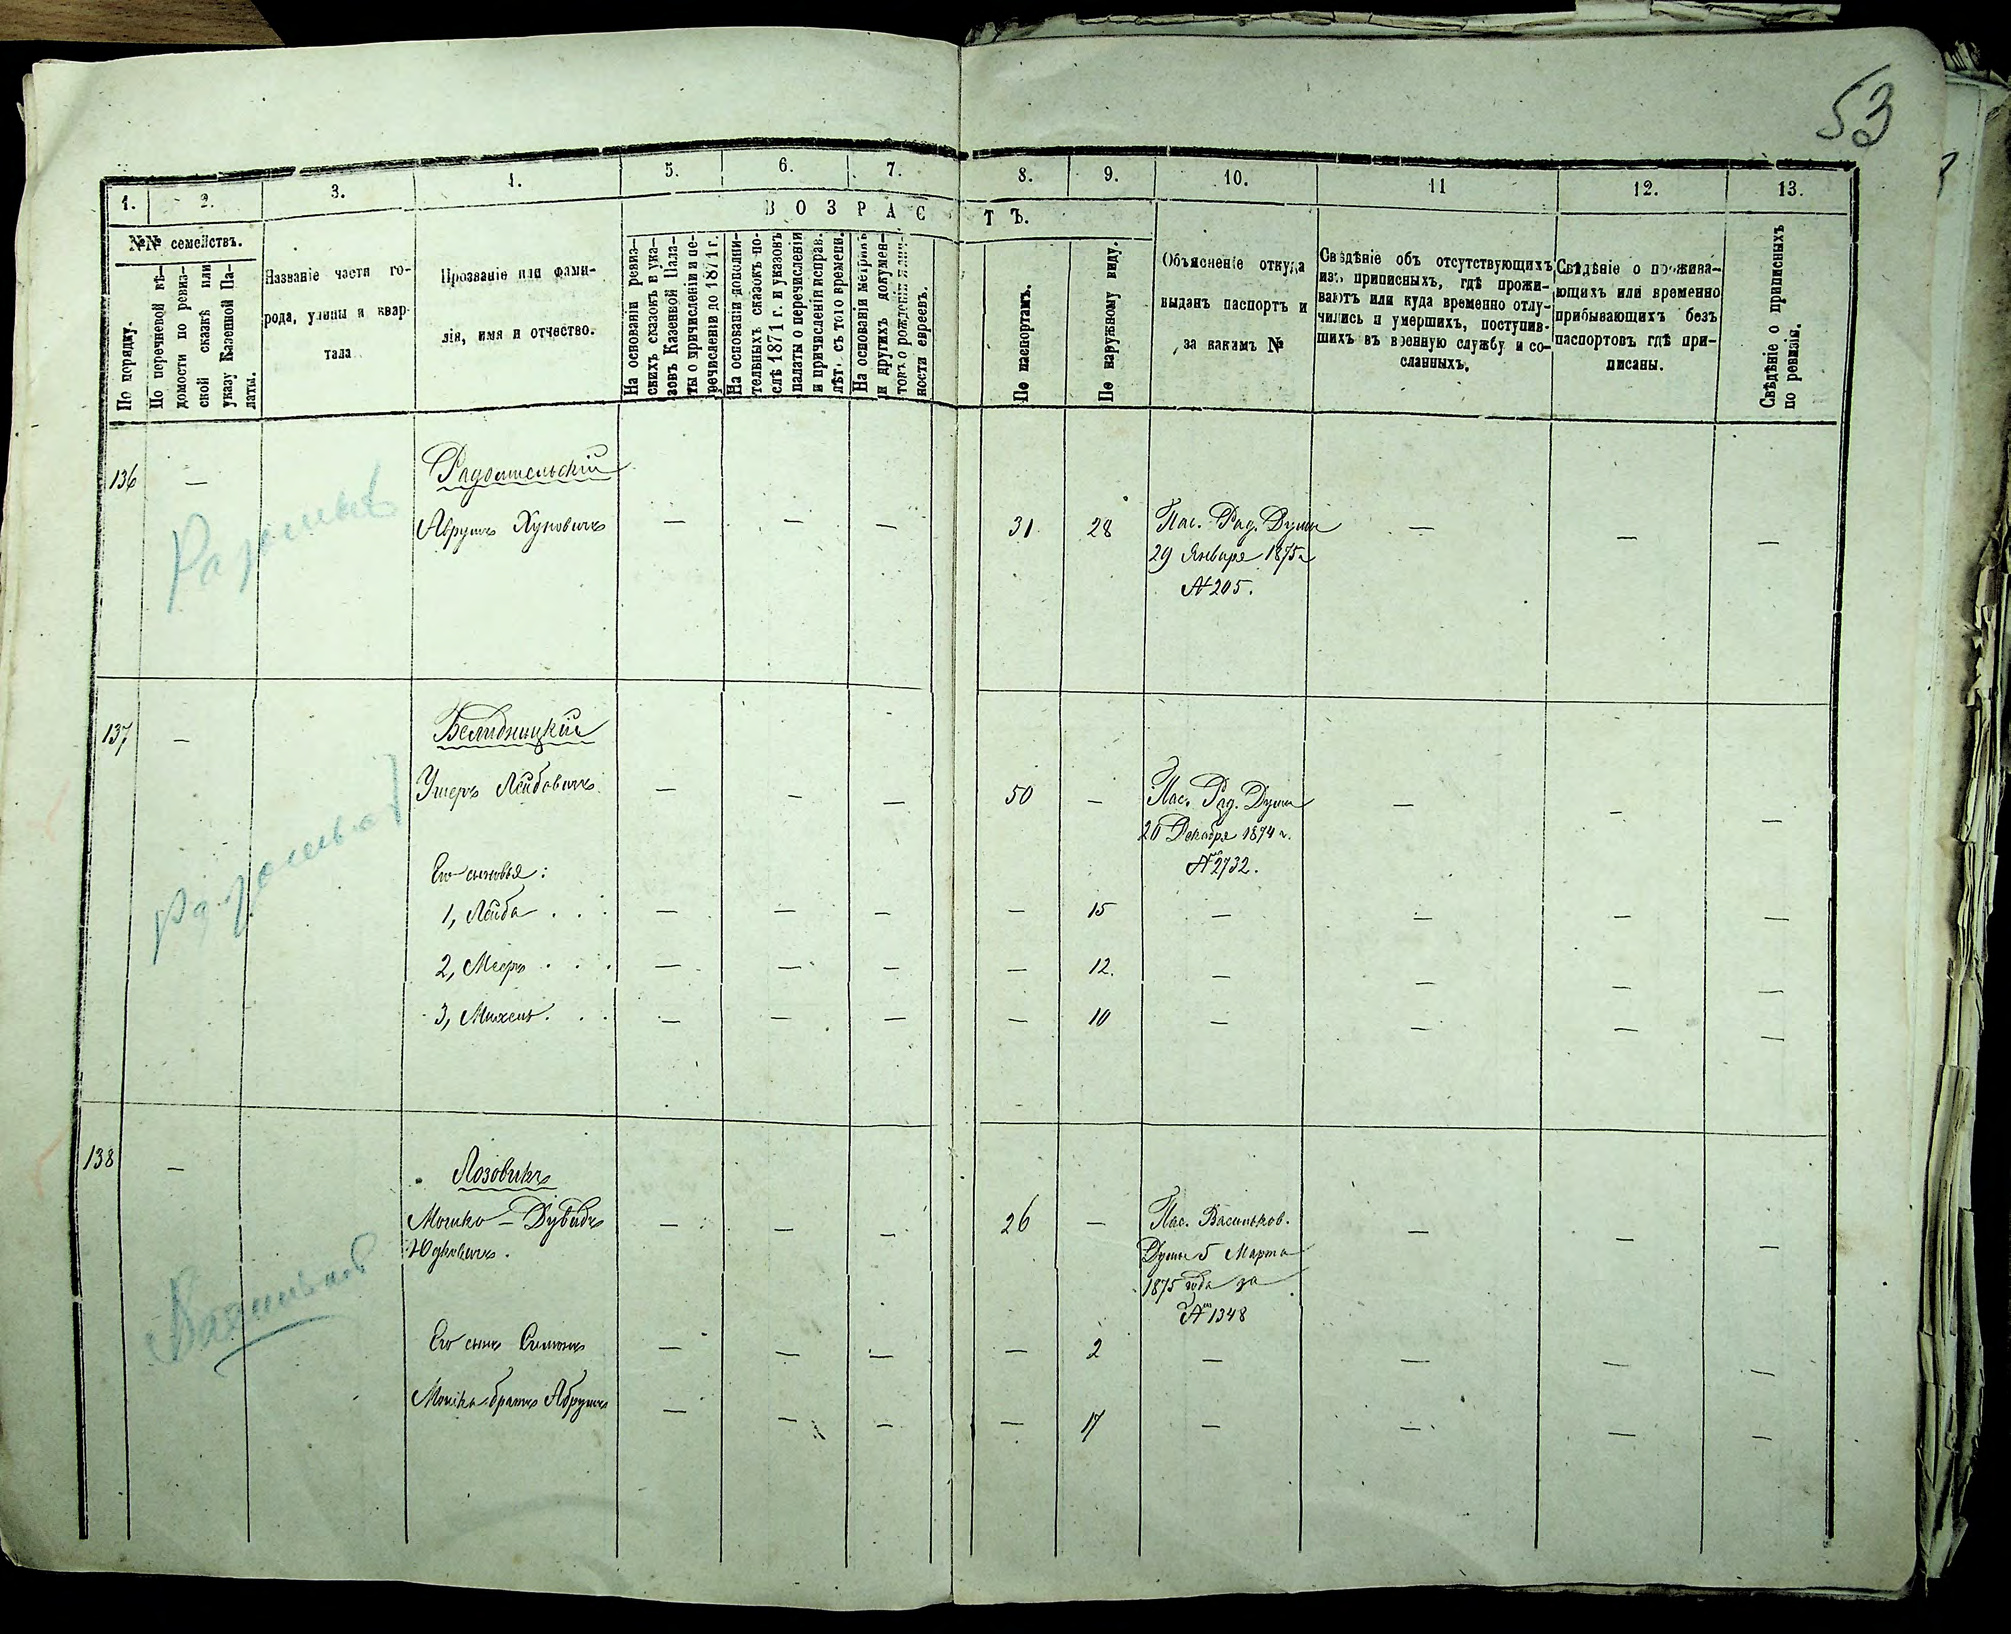 53
1. 2. 3. 4. 5. 6. 7. 8. 9. 10. 11 12. 13.
ВОЗРАСТЪ.
№№ семействъ.
По порядку.
По перечневой вѣ-
домости по ревиз-
ской сказкѣ или
указу Казенной Па-
латы.
Названіе части го-
рода, улицы и квар-
тала
Прозваніе или фами-
лія, имя и отчество.
На основаніи ревиз-
скихъ сказокъ и ука-
зовъ Казенной Пала-
ты о причисленіи и пе-
речисленіи до 1871 г.
На основаніи дополни-
тельныхъ сказокъ по-
слѣ 1871 г. и указовъ
палаты о перечисленіи
и причисленіи исправ.
лѣт. съ того времени.
На основаніи метрикъ
и другихъ докумен-
товъ о рожденіи и лич-
ности евреевъ.
По паспортамъ.
По наружному виду.
Объясненіе откуда
выданъ паспортъ и
за какимъ №
Свѣдѣніе объ отсутствующихъ
изъ приписныхъ, гдѣ прожи-
ваютъ или куда временно отлу-
чились и умершихъ, поступив-
шихъ въ военную службу и со-
сланныхъ.
Свѣдѣніе о прожива-
ющихъ или временно
прибывающихъ безъ
паспортовъ гдѣ при-
писаны.
Свѣдѣніе о приписныхъ
по ревизіи.
136 —
Радомысльскій
Аврумъ Хуновичъ — — — 31 28 Пас. Рад. Думы — — —
29 Января 1875 г
№ 205.
137 —
Белидницкій
Ушеръ Лейбовичъ — — — 50 — Пас. Рад. Думы — — —
20 Декабря 1874 г.
№ 2732.
Его сыновья:
1, Лейба . . . — — — — 15 — — — —
2, Мееръ . . . — — — — 12. — — — —
3, Михель . . . — — — — 10 — — — —
138 —
Лозовикъ
Мошко – Дувидъ — — — 26 — Пас. Васильков. — — —
Юдковичъ.
Думы 5 Марта
1875 года за
№ 1348
Его сынъ Симонъ — — — — 2 — — — —
Мошка братъ Абрумъ — — — — 17 — — — —